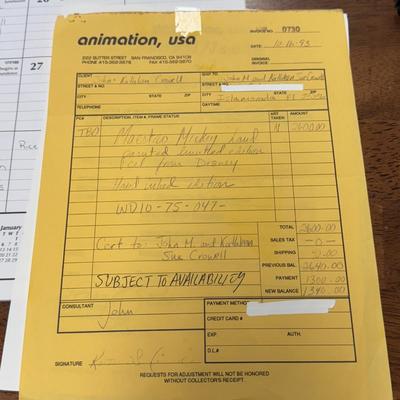 animation, usa
222 SUTTER STREET SAN FRANCISCO, CA 94108
INVOICE NO. 0730
DATE: 10-16-93
ORIGINAL
INVOICE:
CLIENT
John + Kathleen Crowell
SHIP TO:
John M and Kathleen Sue Crowell
STREET & NO.
STREET & NO.
CITY STATE ZIP
CITY STATE ZIP
Islamorada FL
TELEPHONE
DAYTIME
PC# DESCRIPTION, ITEM & FRAME STATUS ART TAKEN AMOUNT
TBO Maestro Mickey hand N 2600.00
painted limited edition
cel from Disney
Hand inked edition
WD10-75-047-
Cert to: John M. and Kathleen
Sue Crowell
SUBJECT TO AVAILABILITY
TOTAL 2600.00
SALES TAX -0-
SHIPPING
PREVIOUS BAL 2640.00
PAYMENT 1300.00
NEW BALANCE 1340.00
CONSULTANT
John
PAYMENT METHOD
CREDIT CARD #
EXP. AUTH.
D.L.#
SIGNATURE
REQUESTS FOR ADJUSTMENT WILL NOT BE HONORED
WITHOUT COLLECTOR'S RECEIPT.
27
January